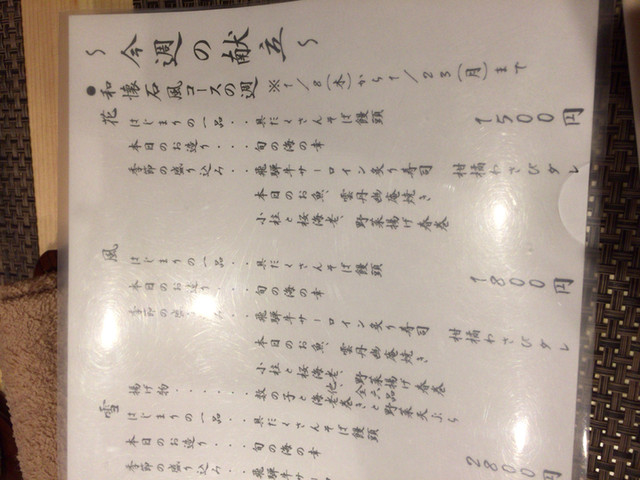 ～今週の献立～
●和懐石風コースの週 ※1/8(木)から1/23(月)まで
花 1500円
はじまりの一品・・具だくさんそば饅頭
本日のお造り・・・旬の海の幸
季節の盛り込み・・飛騨牛サーロイン炙り寿司 柑橘わさびダレ
本日のお魚、雲丹幽庵焼き
小柱と桜海老、野菜揚げ春巻
風 1800円
はじまりの一品・・具だくさんそば饅頭
本日のお造り・・・旬の海の幸
季節の盛り込み・・飛騨牛サーロイン炙り寿司 柑橘わさびダレ
本日のお魚、雲丹幽庵焼き
小柱と桜海老、野菜揚げ春巻
揚げ物・・・・・・数の子と海老巻きと野菜天ぷら
雪 2800円
はじまりの一品・・具だくさんそば饅頭
本日のお造り・・・旬の海の幸
季節の盛り込み・・飛騨牛サーロイン